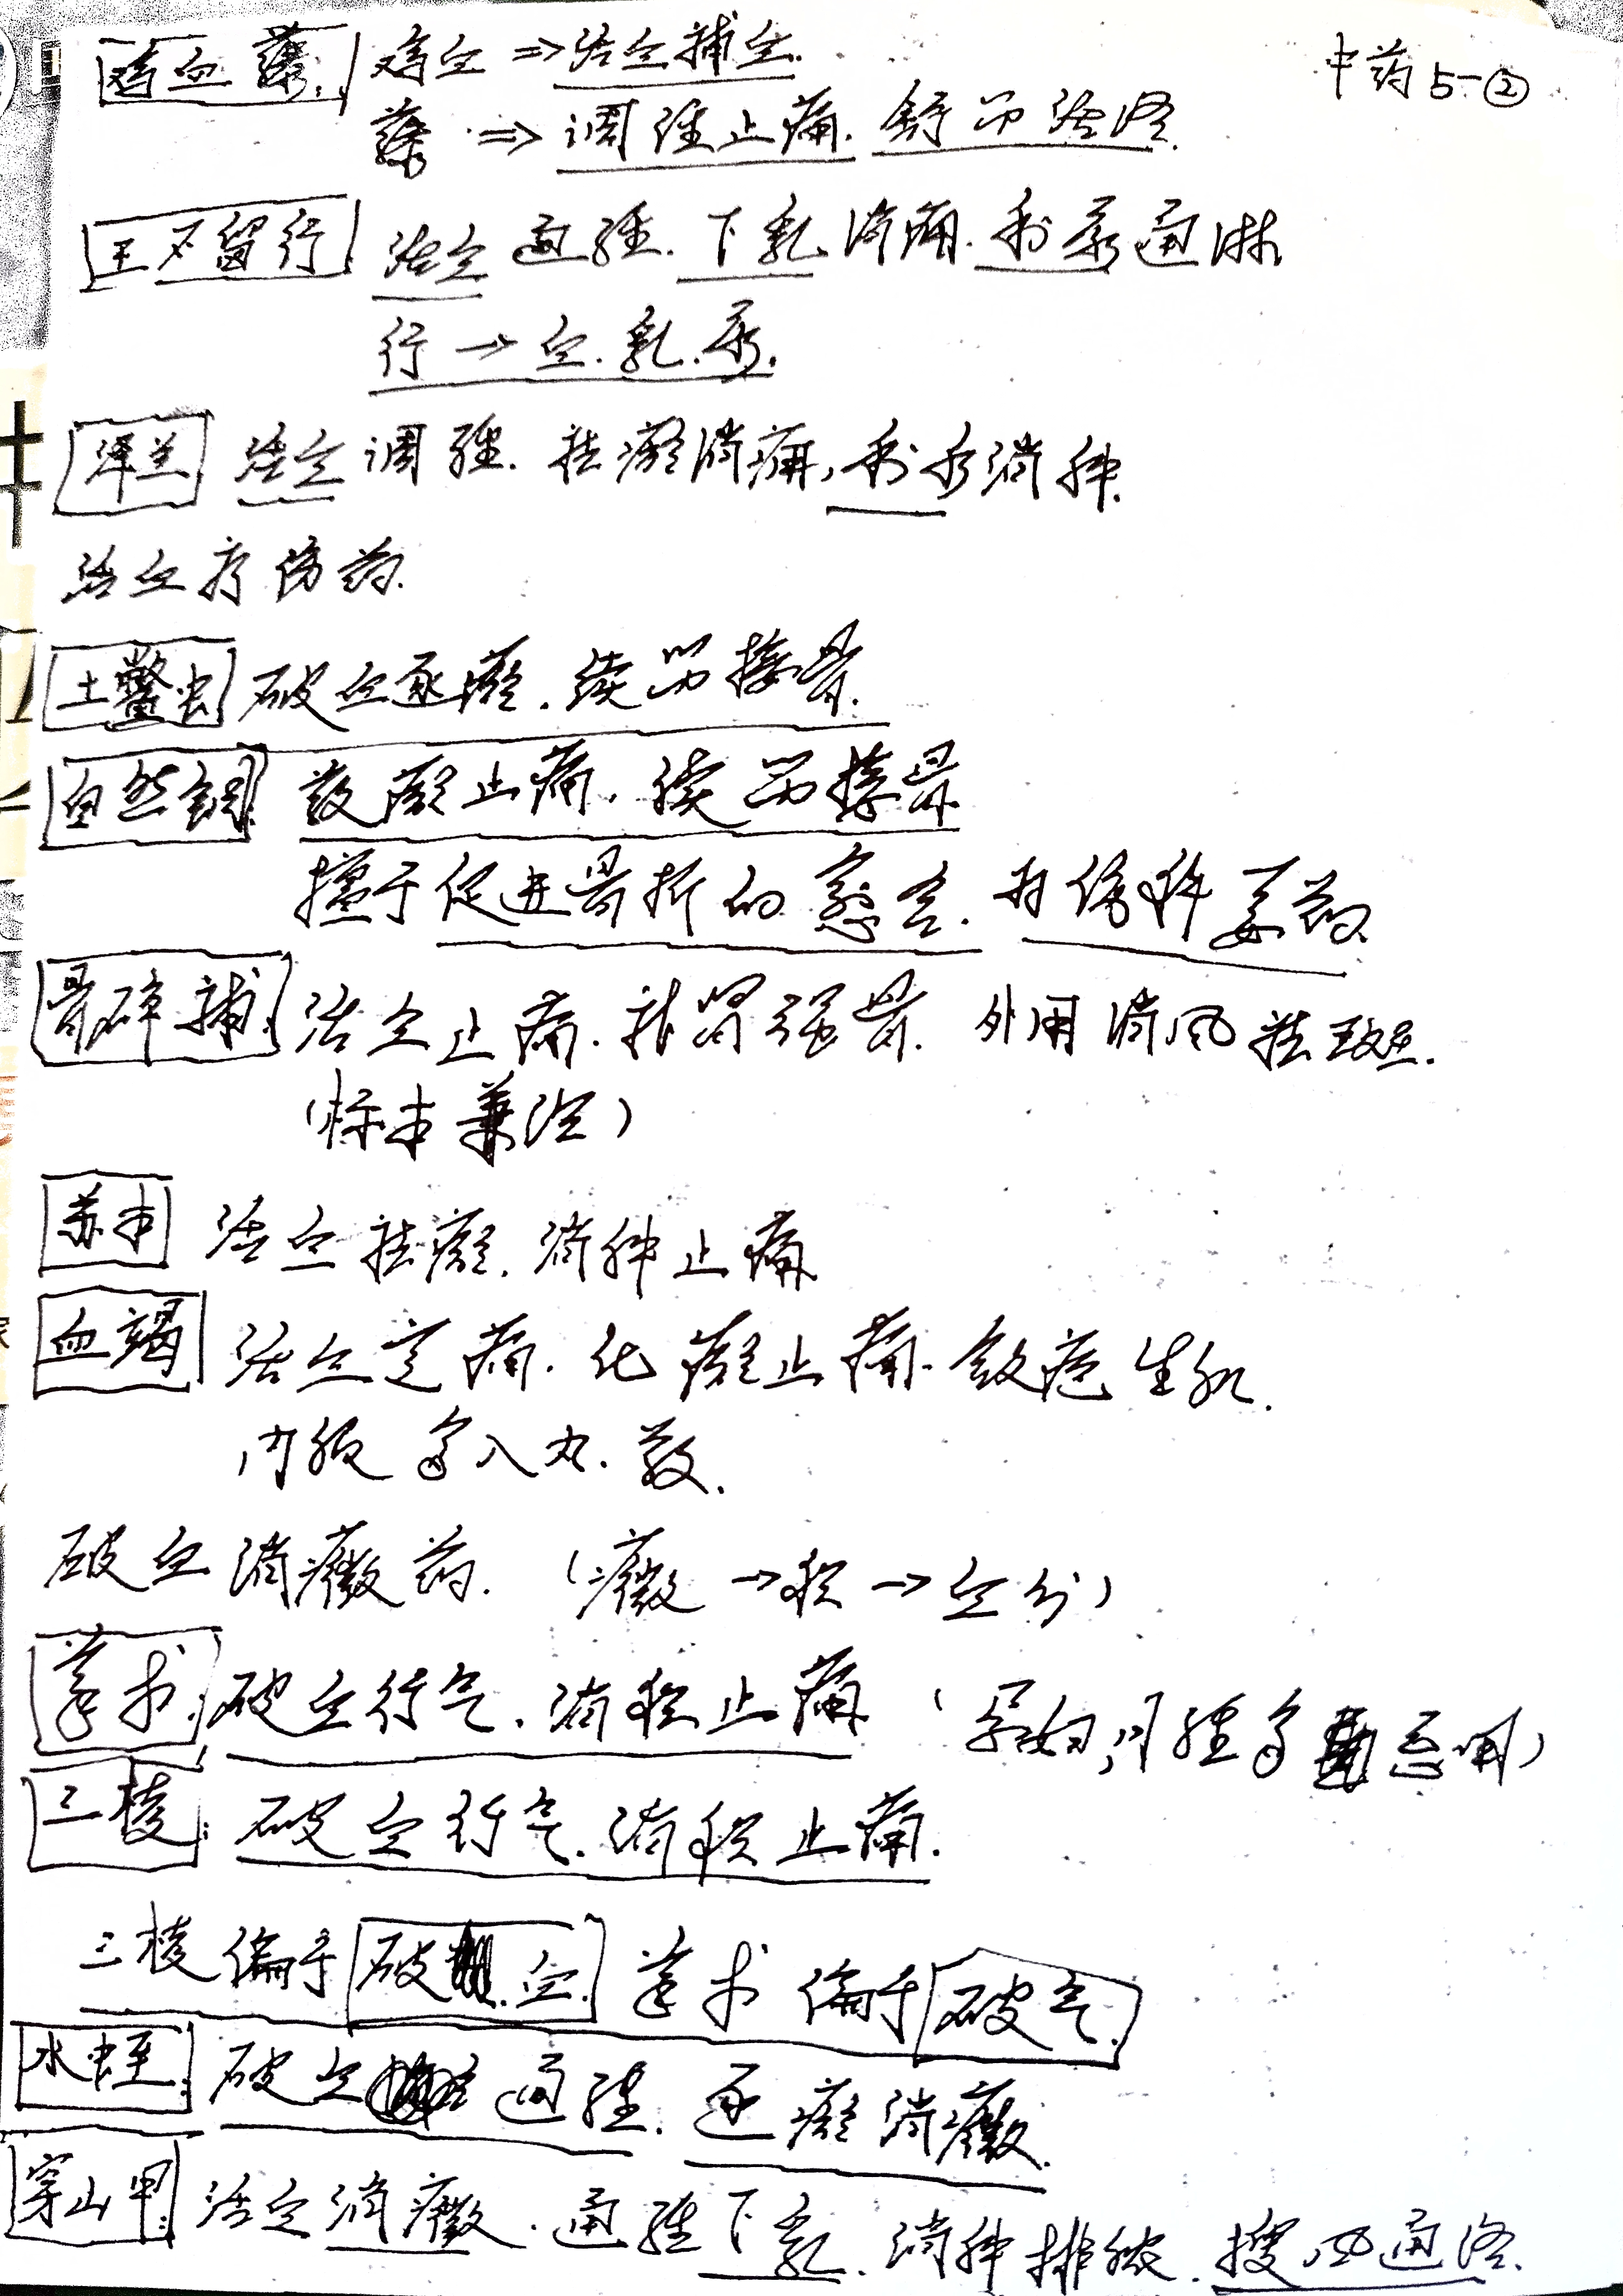 中药5-②
鸡血藤 鸡血⇒活血补血.
藤⇒调经止痛.舒筋活络.
王不留行 活血通经.下乳消痈.利尿通淋
行→血.乳.尿.
泽兰 活血调经.祛瘀消痈,利水消肿.
活血疗伤药.
土鳖虫 破血逐瘀.续筋接骨.
自然铜 散瘀止痛.续筋接骨
擅于促进骨折的愈合.为伤科要药.
骨碎补 活血止痛.补肾强骨.外用消风祛斑.
(标本兼治)
苏木 活血祛瘀.消肿止痛
血竭 活血定痛.化瘀止痛.敛疮生肌.
内服多入丸.散.
破血消癥药.(癥→积→血分)
莪术 破血行气.消积止痛(孕妇,月经多 忌用)
三棱 破血行气.消积止痛.
三棱偏于破血.莪术偏于破气.
水蛭 破血通经.逐瘀消癥.
穿山甲 活血消癥.通经下乳.消肿排脓.搜风通络.